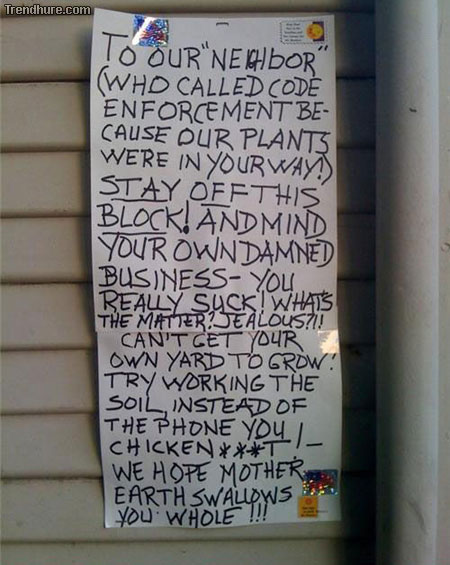 Trendhure.com
TO OUR "NEIGHBOR"
(WHO CALLED CODE
ENFORCEMENT BE-
CAUSE OUR PLANTS
WERE IN YOUR WAY!)
STAY OFF THIS
BLOCK! AND MIND
YOUR OWN DAMNED
BUSINESS- YOU
REALLY SUCK! WHAT'S
THE MATTER? JEALOUS?!!
CAN'T GET YOUR
OWN YARD TO GROW?
TRY WORKING THE
SOIL, INSTEAD OF
THE PHONE YOU
CHICKEN***T!-
WE HOPE MOTHER
EARTH SWALLOWS
YOU WHOLE!!!